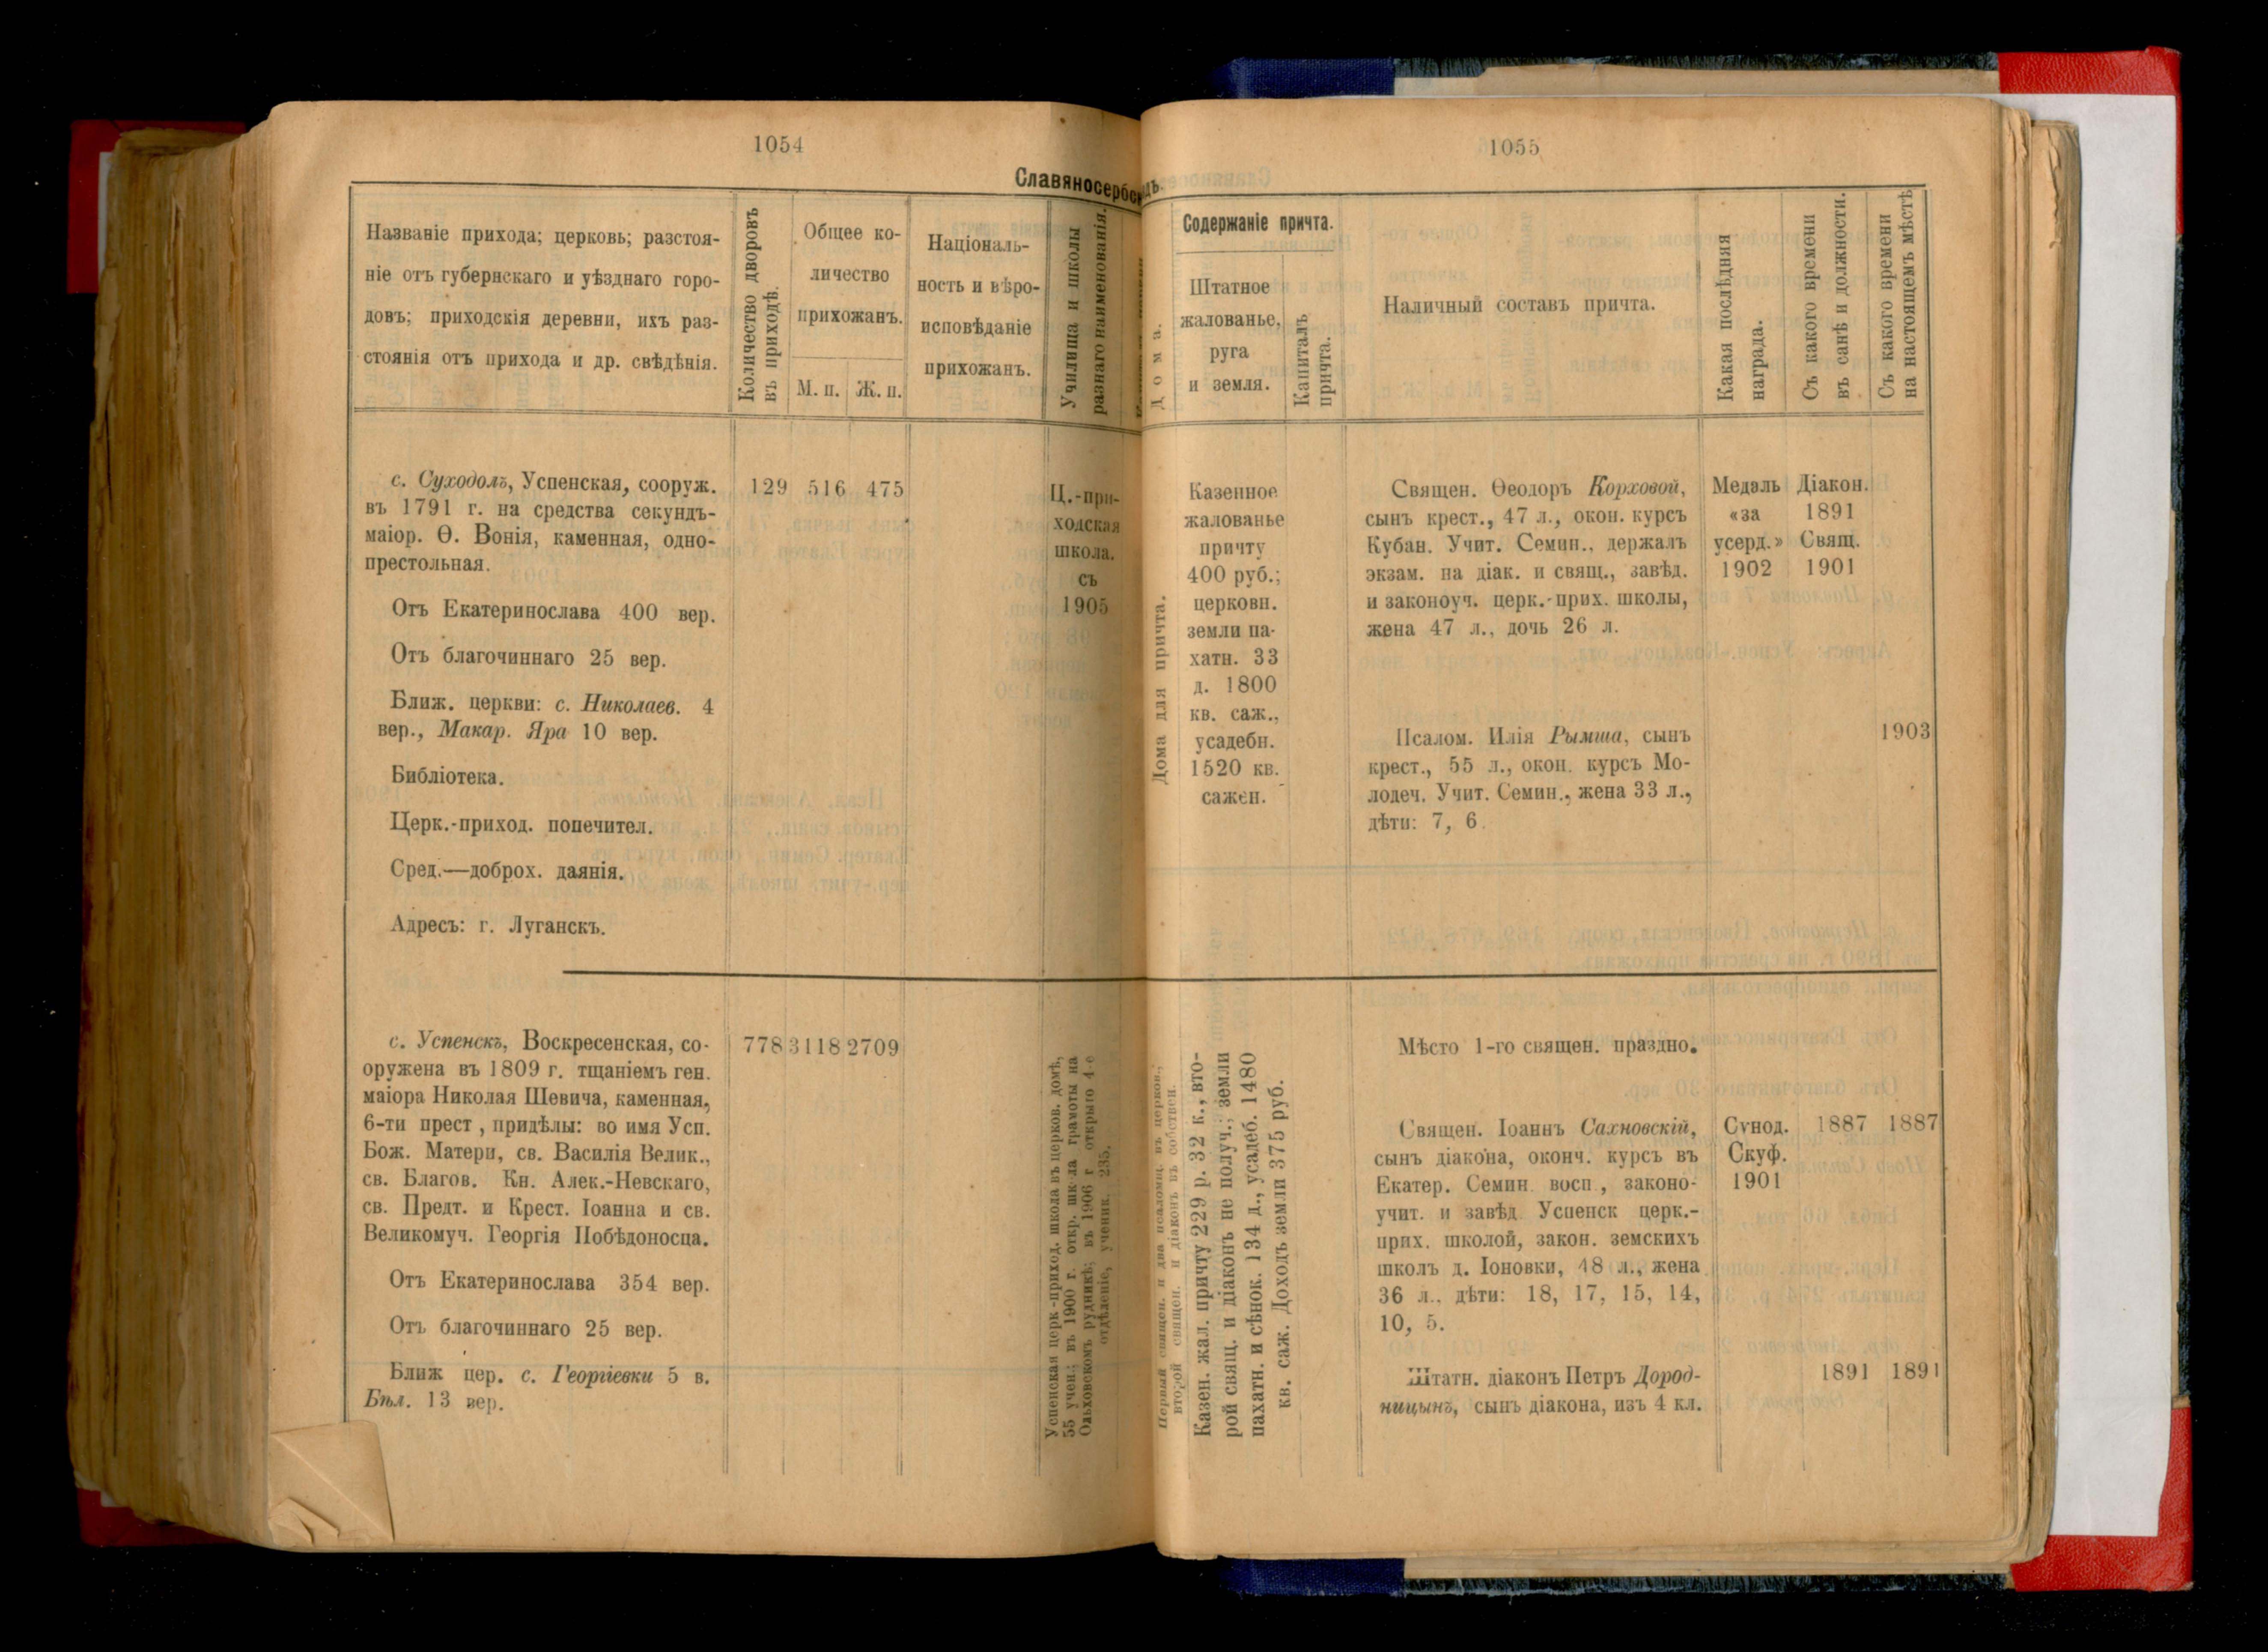 1054
Славяносербск
Названіе прихода; церковь; разстоя-
ніе отъ губернскаго и уѣзднаго горо-
довъ; приходскія деревни, ихъ раз-
стоянія отъ прихода и др. свѣдѣнія.
Количество дворовъ
въ приходѣ.
Общее ко-
личество
прихожанъ.
М. п.
Ж. п.
Націоналъ-
ность и вѣро-
исповѣданіе
прихожанъ.
Училища и школы
разнаго наименованія.
с. Суходолъ, Успенская, сооруж.
въ 1791 г. на средства секундъ-
маіор. Ѳ. Вонія, каменная, одно-
престольная.
Отъ Екатеринослава 400 вер.
Отъ благочиннаго 25 вер.
Ближ. церкви: с. Николаев. 4
вер., Макар. Яра 10 вер.
Библіотека.
Церк.-приход. попечител.
Сред.—доброх. даянія.
Адресъ: г. Луганскъ.
129 516 475
Ц.-при-
ходская
школа.
съ
1905
с. Успенскъ, Воскресенская, со-
оружена въ 1809 г. тщаніемъ ген.
маіора Николая Шевича, каменная,
6-ти прест , придѣлы: во имя Усп.
Бож. Матери, св. Василія Велик.,
св. Благов. Кн. Алек.-Невскаго,
св. Предт. и Крест. Іоанна и св.
Великомуч. Георгія Побѣдоносца.
Отъ Екатеринослава 354 вер.
Отъ благочиннаго 25 вер.
Ближ цер. с. Георгіевки 5 в.
Бѣл. 13 вер.
778 3118 2709
Успенская церк-приход. школа въ церков. домѣ,
55 учен.; въ 1900 г. откр. шк ла грамоты на
Ольховскомъ рудникѣ; въ 1906 г открыто 4-е
отдѣленіе, ученик. 235.
1055
дъ.
Дома.
Содержаніе причта.
Штатное
жалованье,
руга
и земля.
Капиталъ
причта.
Наличный составъ причта.
Какая послѣдняя
награда.
Съ какого времени
въ санѣ и должности.
Съ какого времени
на настоящемъ мѣстѣ
Дома для причта.
Казенное
жалованье
причту
400 руб.;
церковн.
земли па-
хатн. 33
д. 1800
кв. саж.,
усадебн.
1520 кв.
сажен.
Священ. Ѳеодоръ Корховой,
сынъ крест., 47 л., окон. курсъ
Кубан. Учит. Семин., держалъ
экзам. на діак. и свящ., завѣд.
и законоуч. церк.-прих. школы,
жена 47 л., дочь 26 л.
Медаль
«за
усерд.»
1902
Діакон.
1891
Свящ.
1901
Псалом. Илія Рымша, сынъ
крест., 55 л., окон. курсъ Мо-
лодеч. Учит. Семин., жена 33 л.,
дѣти: 7, 6.
1903
Первый священ. и два псаломщ. въ церков.,
второй священ. и діаконъ въ собствен.
Казен. жал. причту 229 р. 32 к., вто-
рой свящ. и діаконъ не получ.; земли
пахатн. и сѣнок. 134 д., усадеб. 1480
кв. саж. Доходъ земли 375 руб.
Мѣсто 1-го священ. праздно.
Священ. Іоаннъ Сахновскій,
сынъ діакона, оконч. курсъ въ
Екатер. Семин восп , законо-
учит. и завѣд Успенск церк.-
прих. школой, закон. земскихъ
школъ д. Іоновки, 48 л., жена
36 л., дѣти: 18, 17, 15, 14,
10, 5.
Сѵнод.
Скуф.
1901
1887 1887
Штатн. діаконъ Петръ Дород-
ницынъ, сынъ діакона, изъ 4 кл.
1891 1891